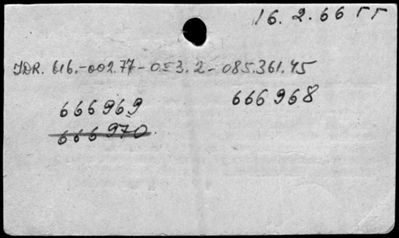 16. 2. 66 ГГ
JDR. 616.-002.77-053.2-085.361.45
666969 666968
666970